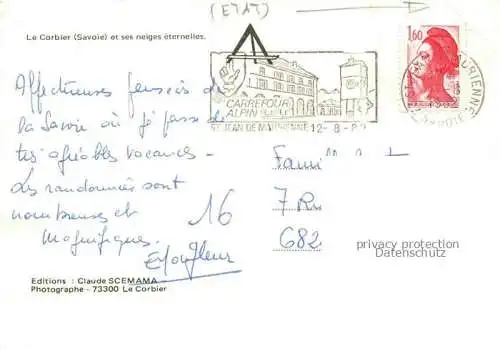 (ETAT)
Le Corbier (Savoie) et ses neiges éternelles.
1,60
CARREFOUR
ALPIN
ST JEAN DE MAURIENNE 12-8-82
SAVOIE
Affectueuses pensées de
la Savoie où je passe de
très agréables vacances.
Les randonnées sont
nombreuses et
magnifiques.
16
Fami
7 Ru
682
privacy protection
Datenschutz
Editions : Claude SCEMAMA
Photographe - 73300 Le Corbier